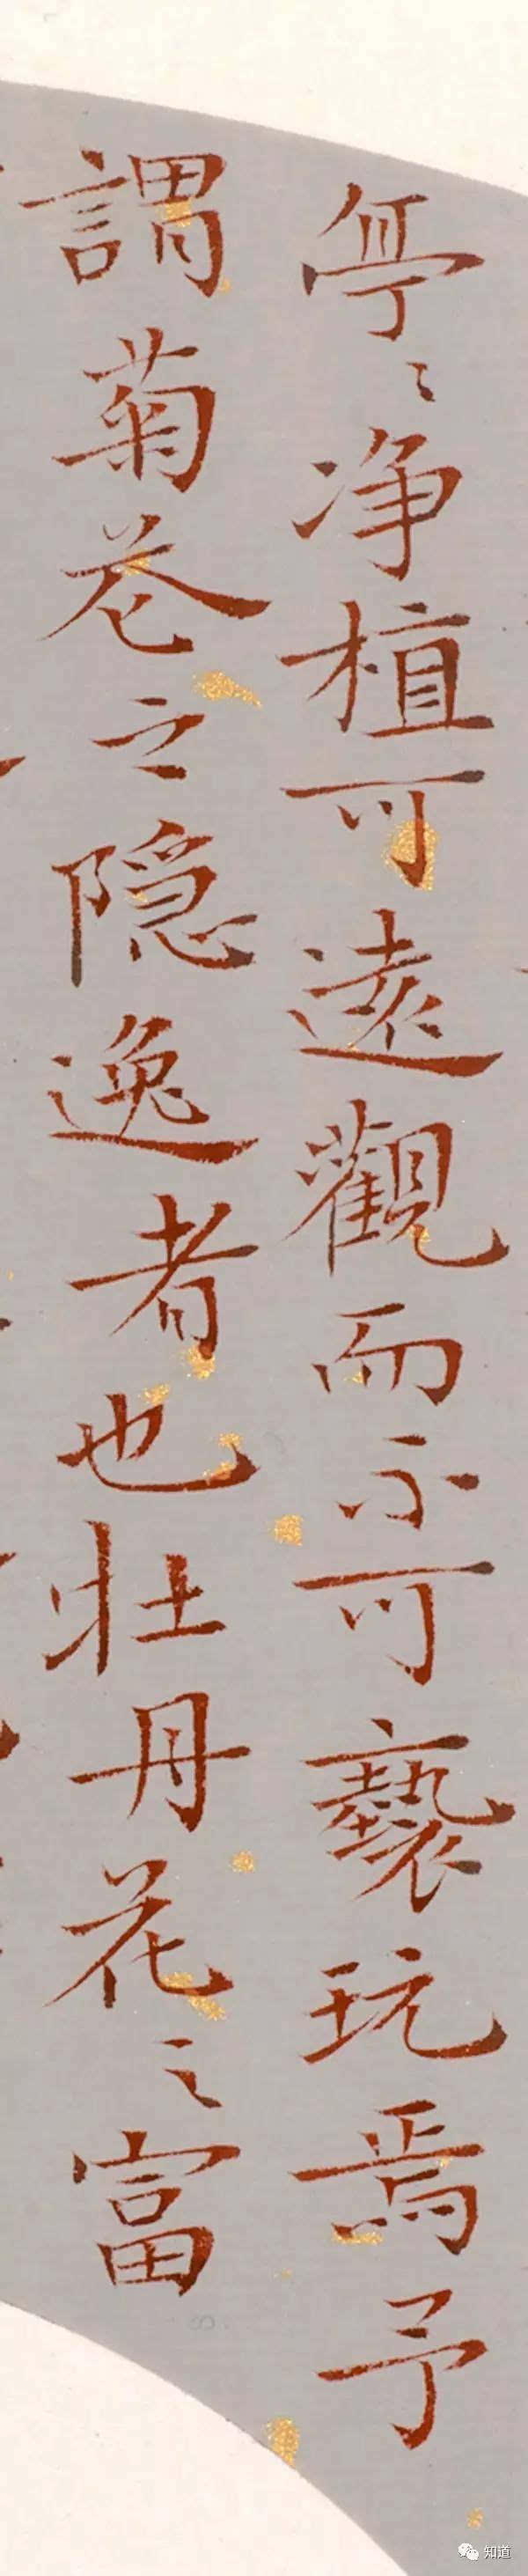 亭〻净植可遠觀而不可褻玩焉予
謂菊花之隐逸者也牡丹花之富
知道